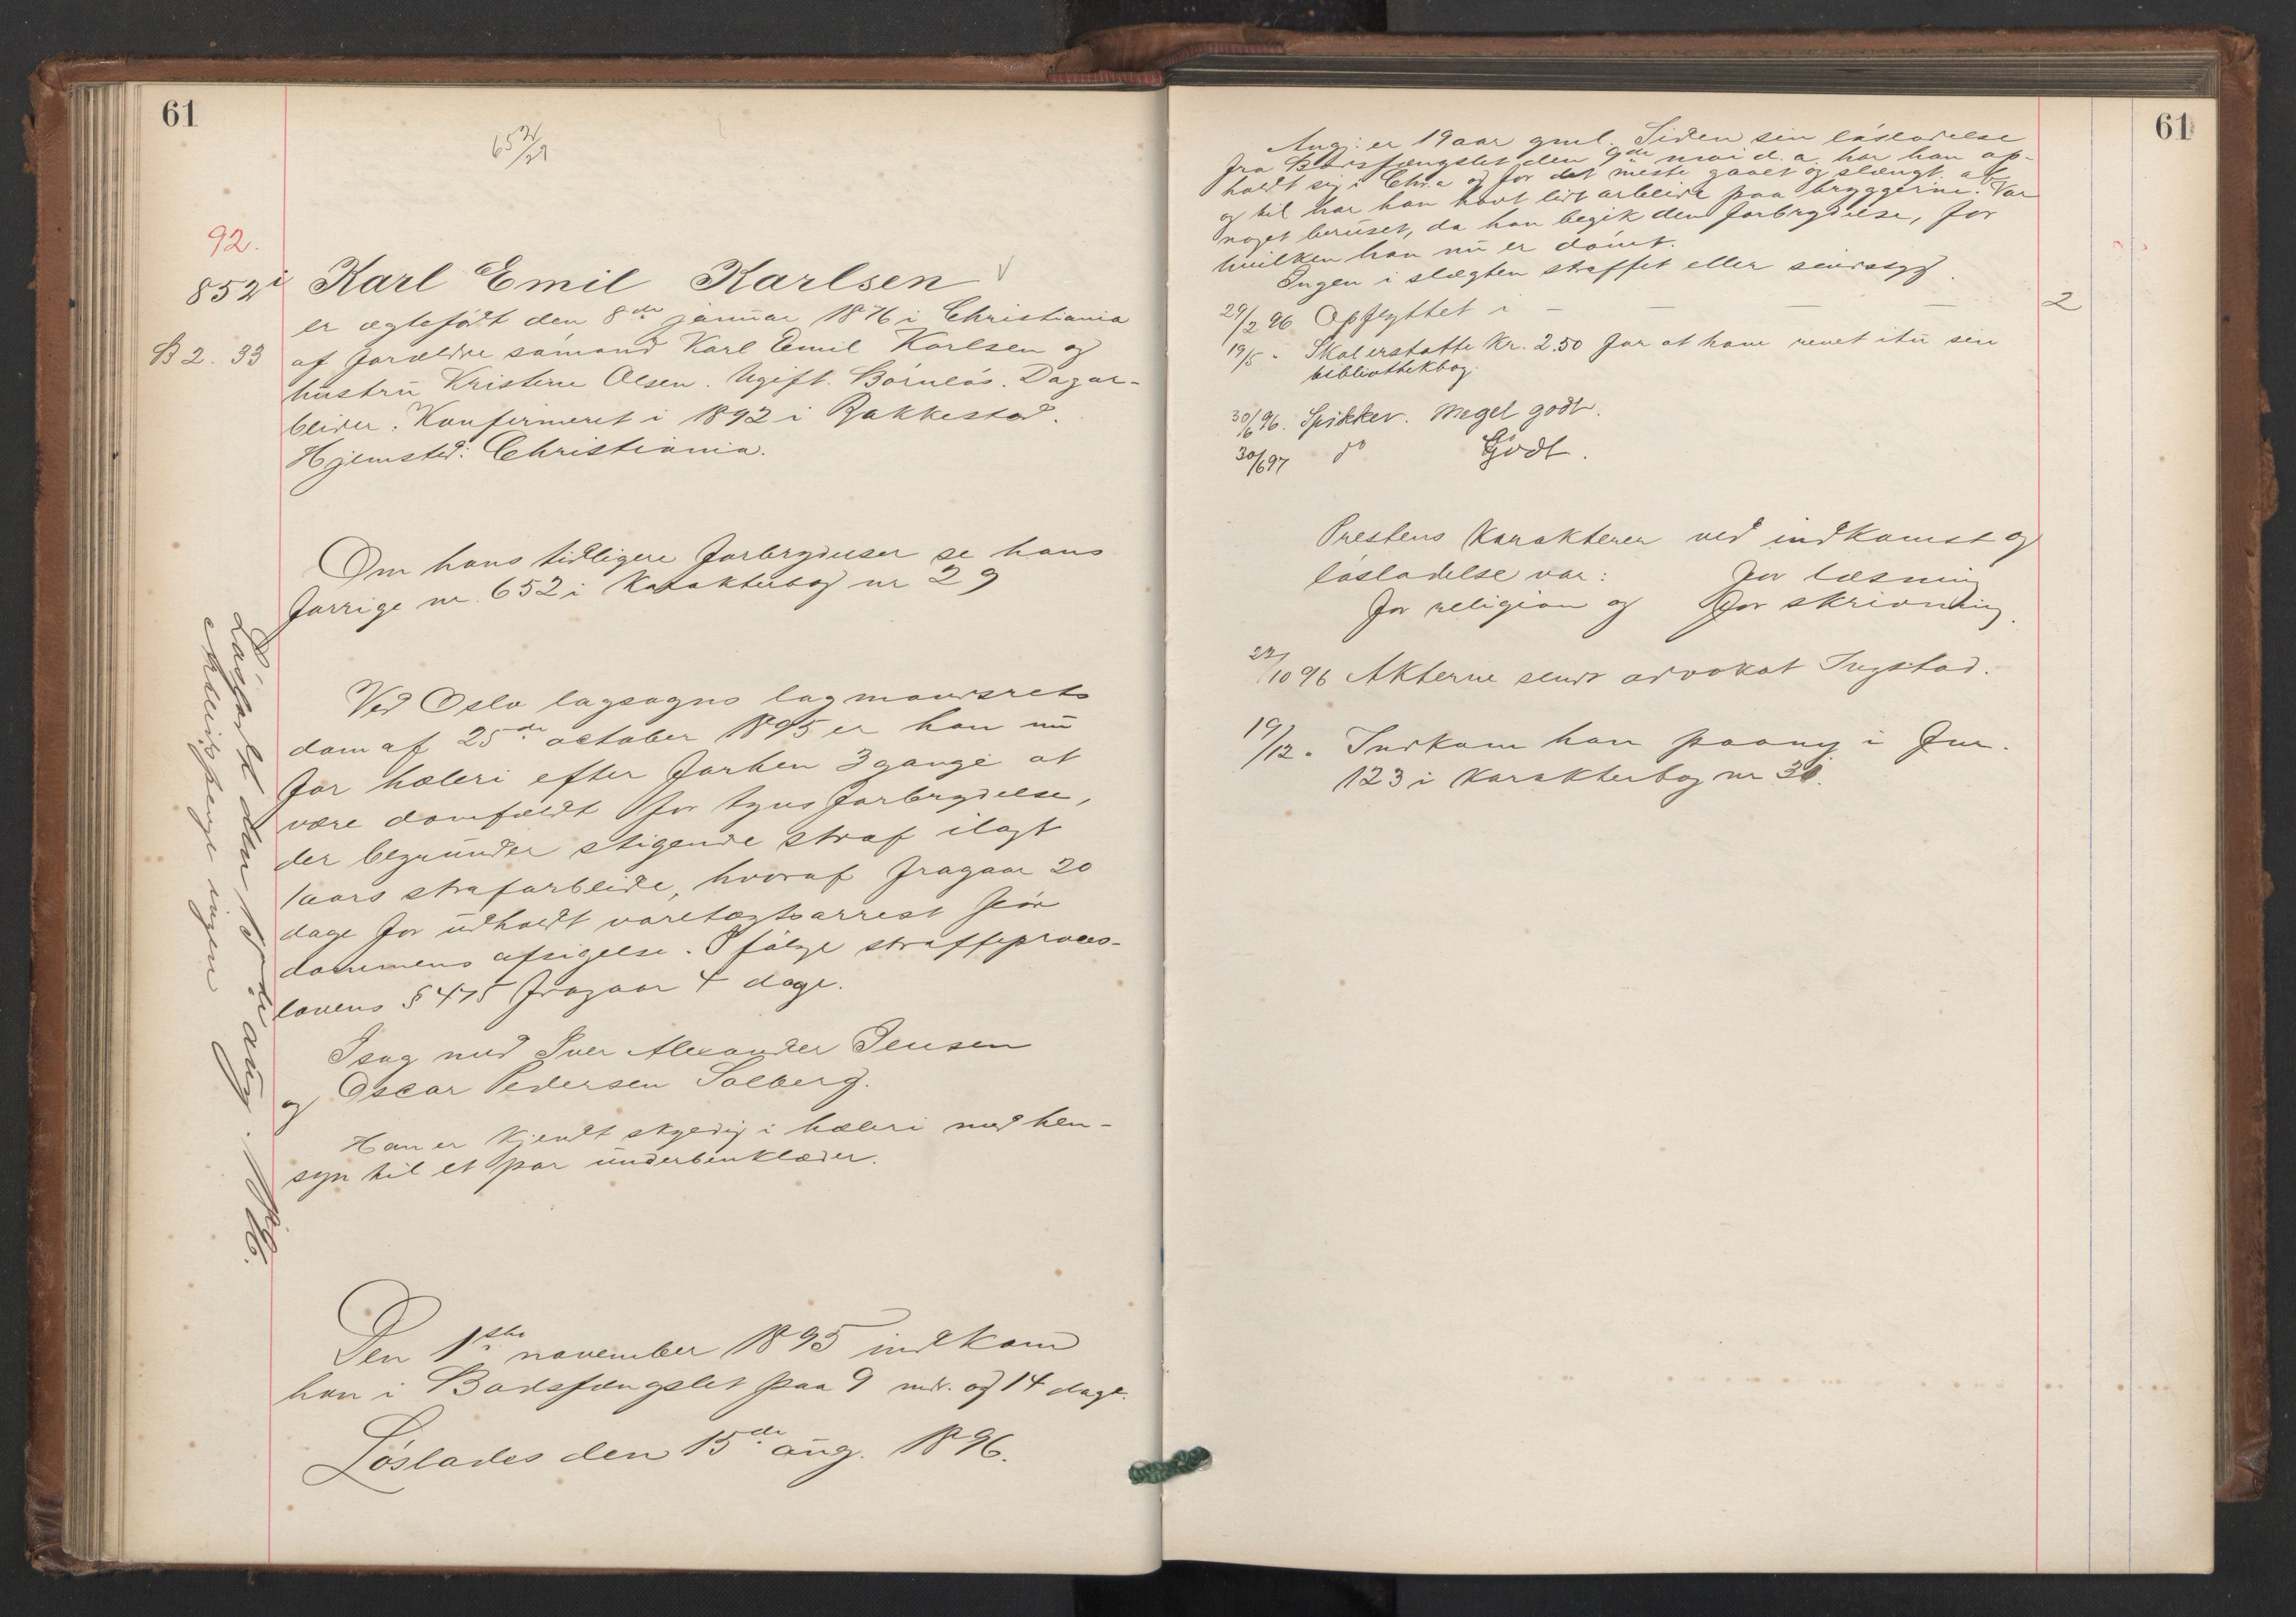 61
652/29
92.
852 i Karl Emil Karlsen
er ægtefødt den 8de januar 1876 i Christiania
B 2. 33 af forældre sømand Karl Emil Karlsen og
hustru Kristine Olsen. Ugift. Børnløs. Dagar-
beider. Konfirmeret i 1892 i Rakkestad.
Hjemsted: Christiania.
Om hans tidligere forbrydelser se hans
forrige nr 652 i karakterbog nr 29
Ved Oslo lagsogns lagmandsrets
dom af 25de october 1895 er han nu
for hæleri efter forhen 3 gange at
være domfældt for tyvsforbrydelse,
der begrunder stigende straf ilagt
1 aars strafarbeide, hvoraf fragaar 20
dage for udholdt varetægtsarrest før
dommens afsigelse. I følge straffeproces-
lovens § 475 fragaar 4 dage.
I sag med Iver Alexander Jensen
og Oscar Pedersen Solberg.
Han er kjendt skyldig i hæleri med hen-
syn til et par underbenklæder.
Den 1ste november 1895 indkom
han i Bodsfængslet paa 9 mdr. og 14 dage.
Løslades den 15de aug. 1896.
Løsladt den 15de aug. 1896.
Arbeidspenge ingen
61
Angj: er 19 aar gml. Siden sin løsladelse
fra Bodsfængslet den 9de mai d. a. har han op-
holdt sig i Chr.a og for det meste gaaet og slængt. af
og til har han havt lidt arbeide paa bryggerne. Var
noget beruset, da han begik den forbrydelse, for
hvilken han nu er dømt.
Ingen i slægten straffet eller sindssyg.
29/2 96 Opflyttet i — — — — 2
19/5 " Skal erstatte Kr. 2.50 for at have revet itu sen
bibliothekbog.
30/6 96. Spikker. Meget godt.
30/6 97 do Godt.
Prestens karakterer ved indkomst og
løsladelse var: for læsning
for religion og for skrivning.
22/10 96 Akterne sendt advokat Ingstad.
19/12 " Indkom han paany i Fnr.
123 i karakterbog nr 31.